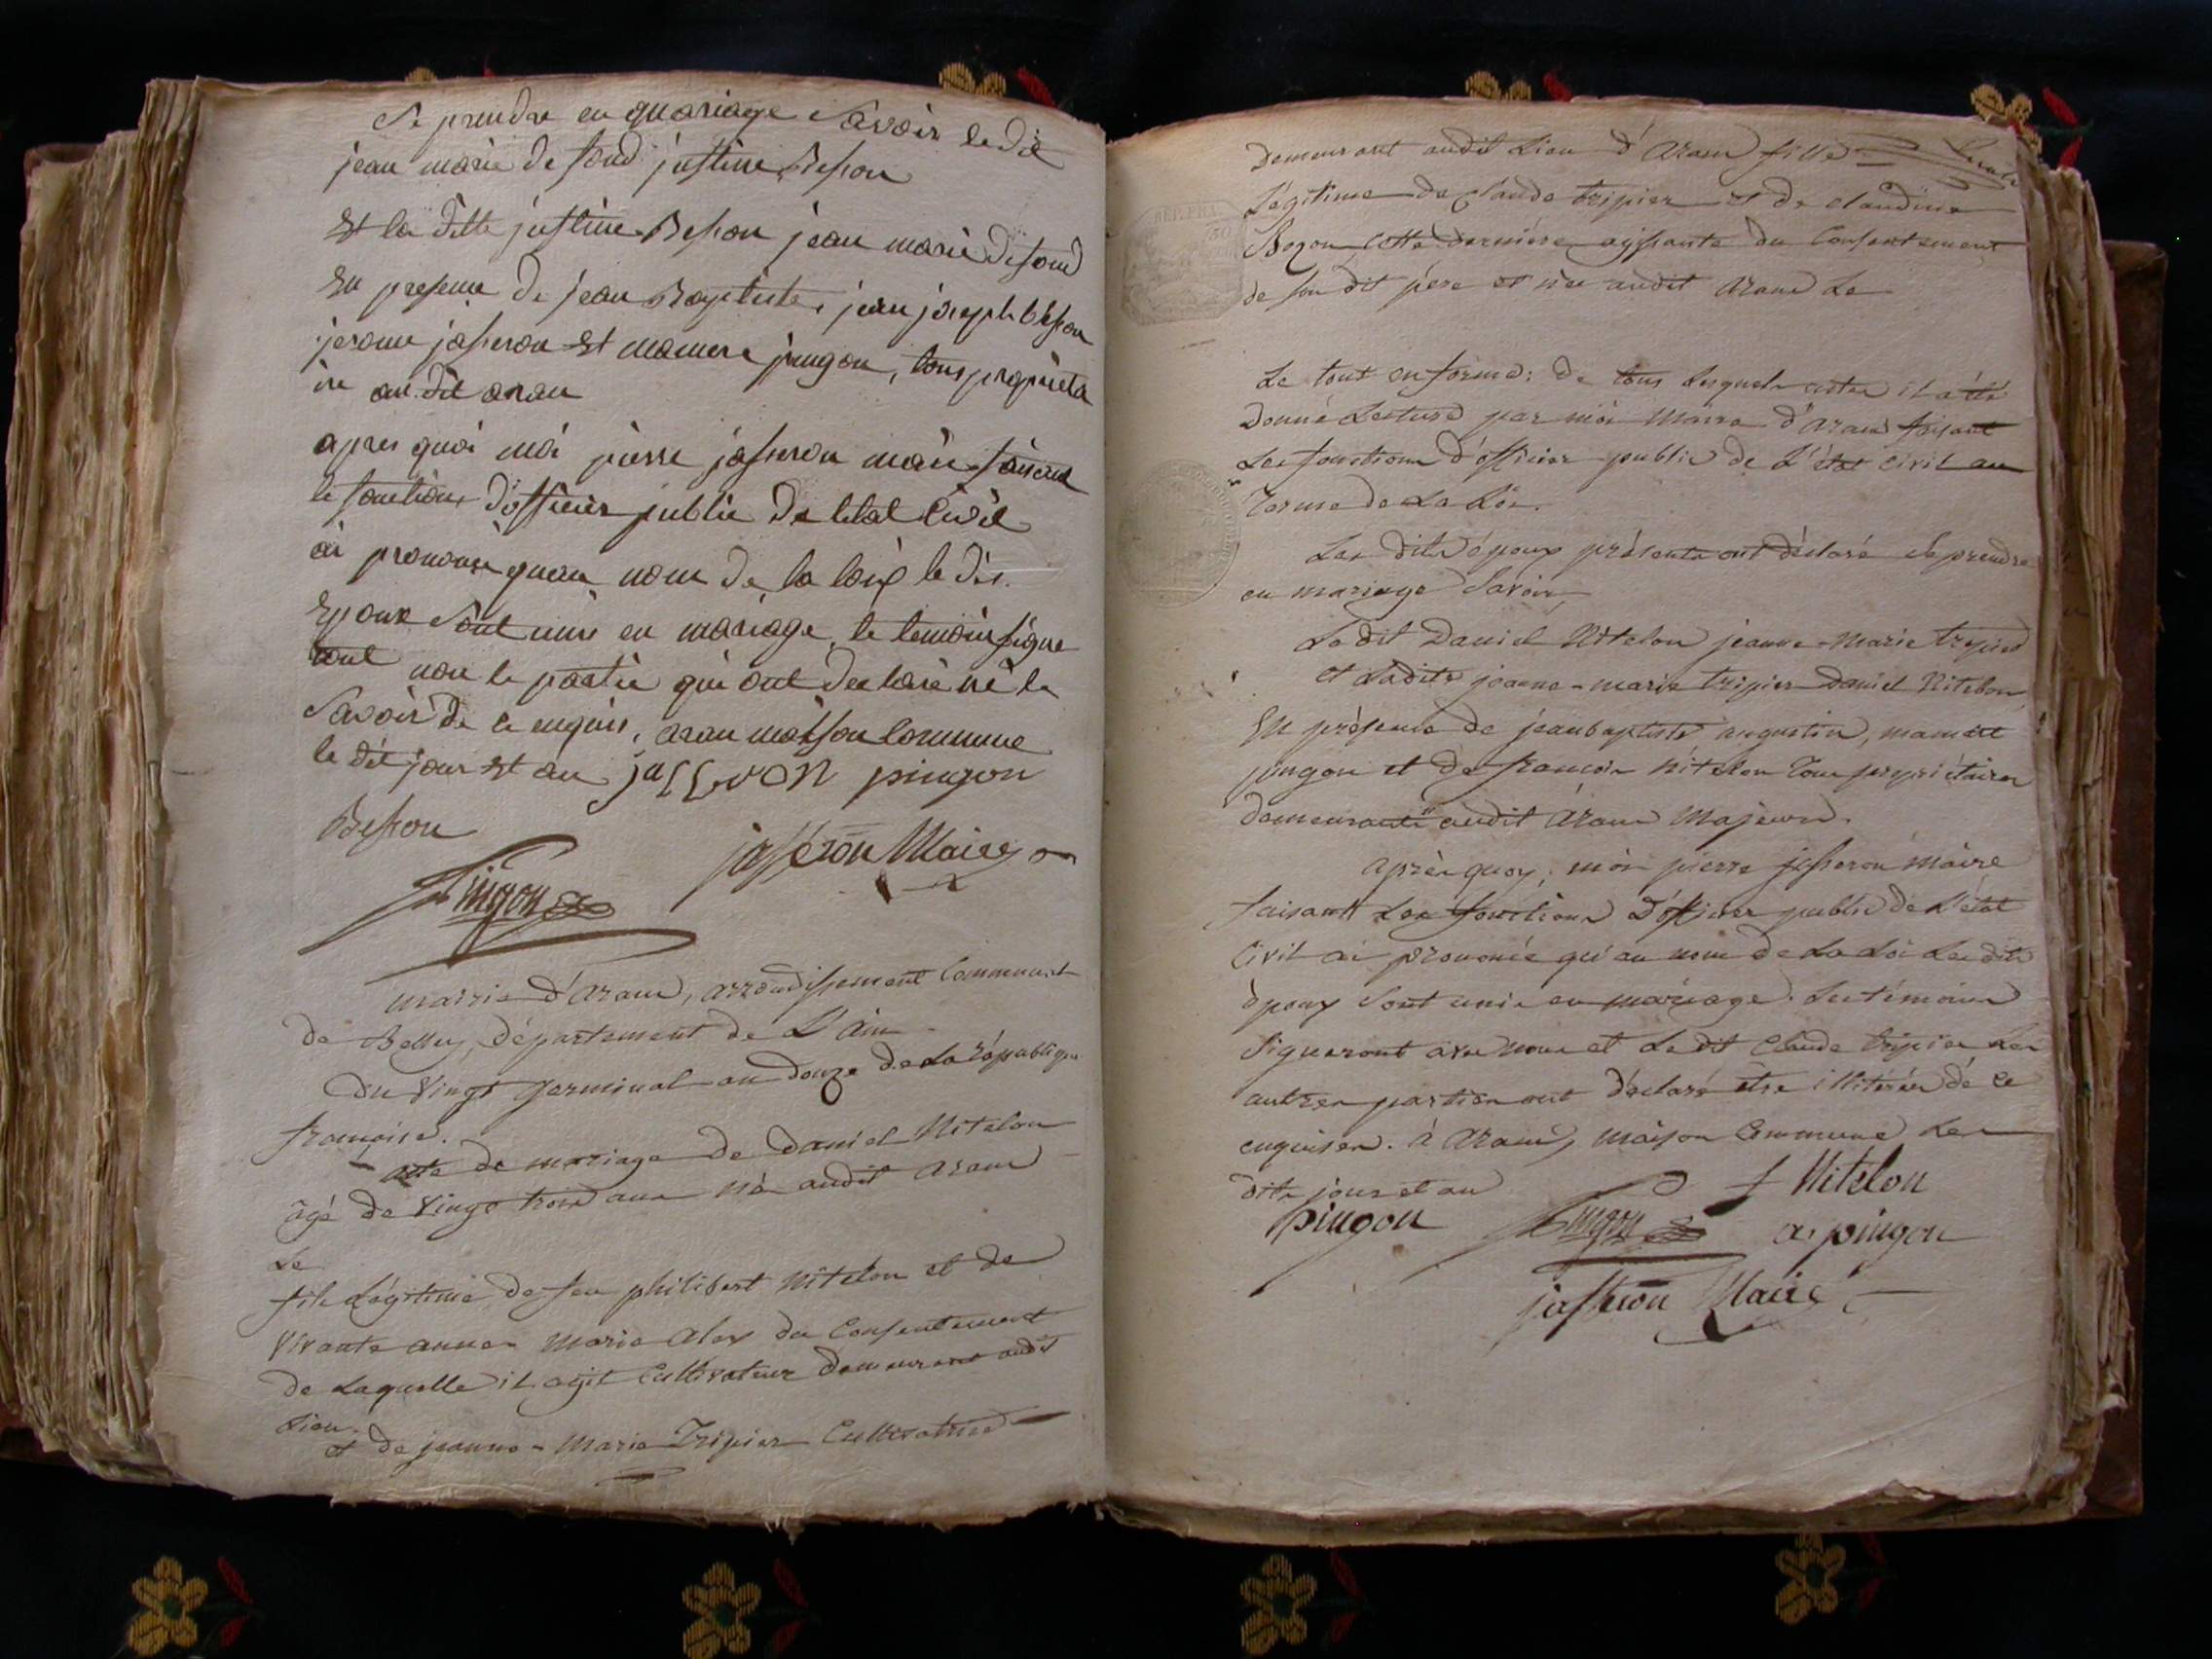 Se prendre en mariage Savoir le dit
jean marie defond justine Besson
Et la ditte justine Besson jean marie defond
En presence de jean Baptiste, jean joseph besson
jerome josseron Et mamere pingon, tous proprieta
ire au dit aran
apres quoi moi pierre josseron maire faisant
le fonctions d'officier public de letat Civil
ai prononcé quau nom de la loix le dis.
Epoux Sont unis en mariage, le temoins signe
ront non le partie qui ont declaré ne le
Savoir de ce enquis, aran maison Commune
le dit jour Et an josseron pingon
Besson
pingon josseron Maire
mairie d'Aran, arrondissement Communal
de Belley, département de L'Ain
Du Vingt germinal an douze de La République
françoise.
acte de mariage de Daniel Nitelon
âgé de Vingt trois ans né audit Aran
Le
fils Légitime de feu philibert Nitelon et de
Vivante anne Marie Alex du Consentement
de Laquelle il agit Cultivateur demeurant audit
Lieu.
et de jeanne-Marie Tripier Cultivatrice
demeurant audit Lieu d'Aran fille
Légitime de Claude tripier et de claudine
Bozon cette dernière agissante du Consentement
de son dit père et née audit Aran Le
REP. FRA.
50
Le tout en forme: de tous lesquels actes il a été
Donné Lecture par moi Maire d'Aran faisant
Les fonctions d'officier public de L'état Civil au
Terme de La Loi.
Les dits époux présents ont déclaré Se prendre
en mariage Savoir,
Le dit Daniel Nitelon jeanne-Marie tripier
et Ladite jeanne-marie tripier Daniel Nitelon,
En présence de jean baptiste augustin, mamert
pingon et de françois Nitelon tous propriétaires
demeurants audit Aran Majeurs.
Après quoy, moi pierre josseron maire
faisant Les fonctions D'officier public de L'état
Civil ai prononcé qu'au nom de La Loi Les dits
époux Sont unis en mariage. Les témoins
Signeront avec nous et Le dit Claude tripier Les
autres parties ont déclaré être illitérées de ce
enquises. à Aran, Maison Commune Les
dits jour et an
f Nitelon
pingon pingon a. pingon
josseron Maire